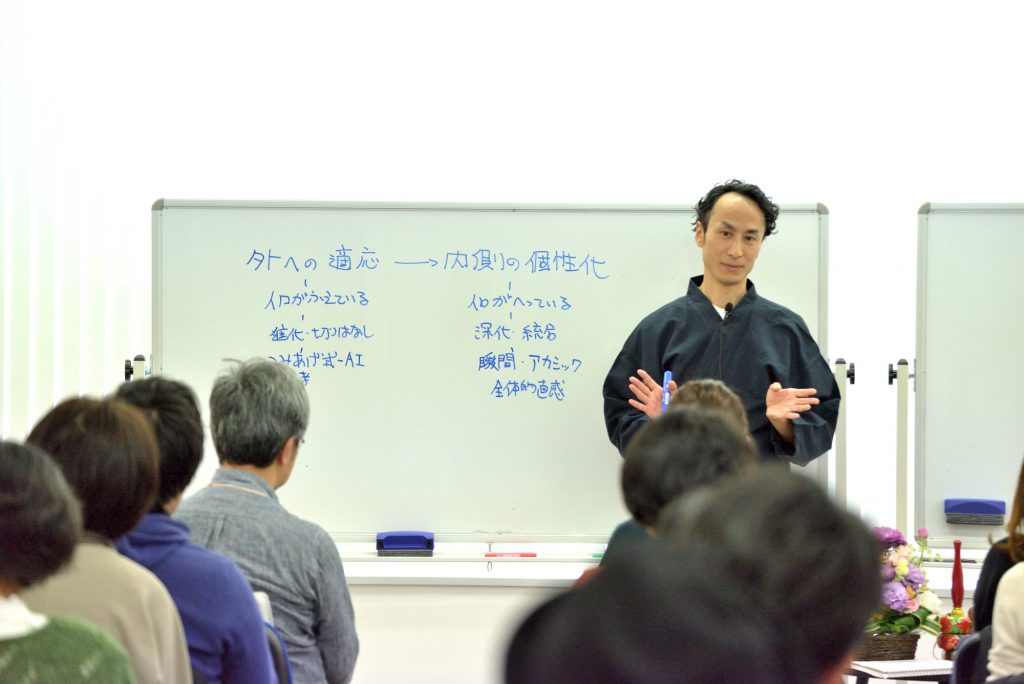 外への適応 → 内側の個性化
イロがふえている
進化・切りはなし
つみあげ式-AI
イロがへっている
深化・統合
瞬間・アカシック
全体的直感